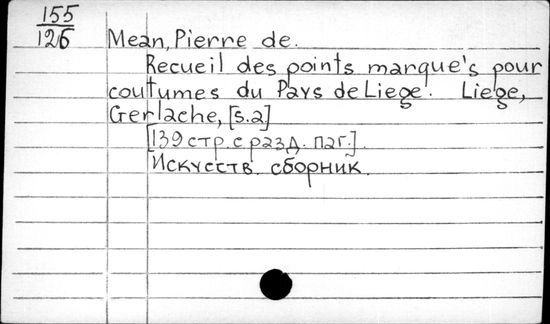 155
126
Mean, Pierre de.
Recueil des points marque's pour
coutumes du Pays de Liege. Liege,
Gerlache, [s.a]
[139 стр. с разд. паг.].
Искусств. сборник.